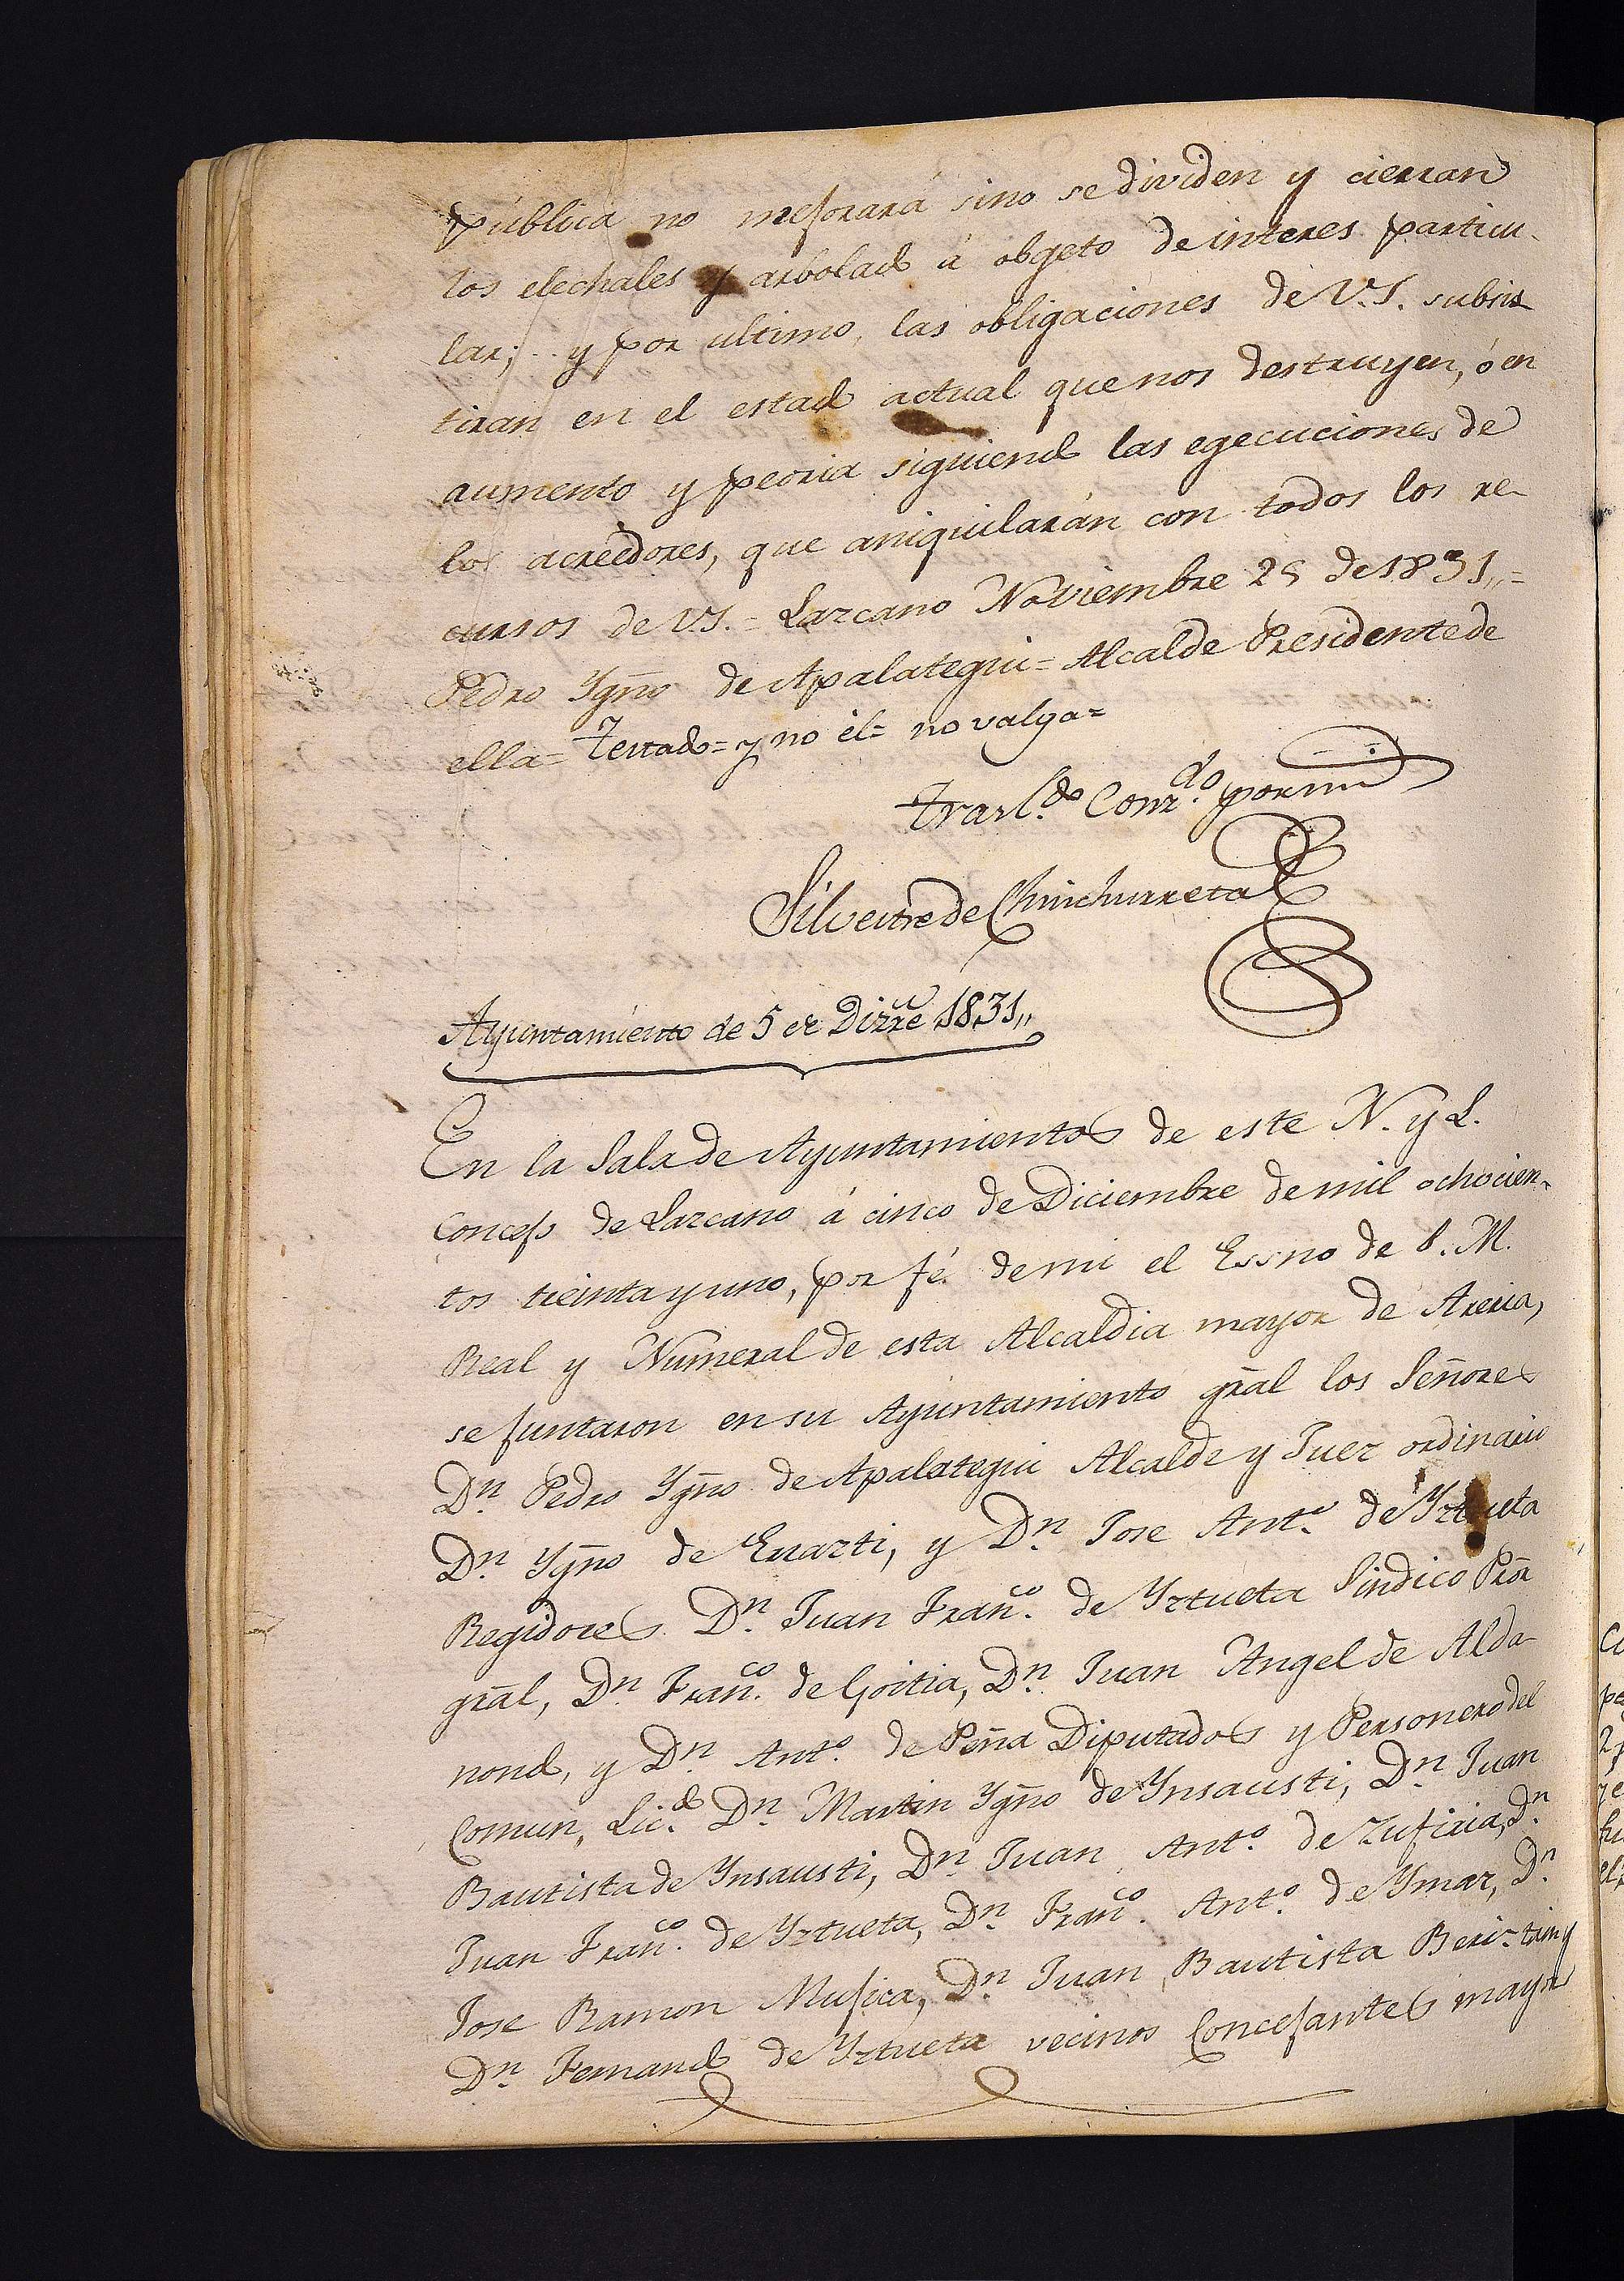 pública no mejorará sino se dividen y cierran
los elechales y arbolado á objeto de interes particu-
lar; y por ultimo, las obligaciones de V.S. subsis
tiran en el estado actual que nos destruyen, ó en
aumento y peoria siguiendo las egecuciones de
los acreedores, que aniquilarán con todos los re-
cursos de V.S. = Lazcano Noviembre 25 de 1831,,=
Pedro Ygño de Apalategui = Alcalde Presidente de
ella = Testado = y no el = no valga =
Trasl.do Conz.do por mi
Silvestre de Chinchurreta
Ayuntamiento de 5 de Dizre 1831,,
En la Sala de Ayuntamientos de este N. y L.
Concejo de Lazcano á cinco de Diciembre de mil ochocien-
tos treinta y uno, por fé de mi el Essno de S. M.
Real y Numeral de esta Alcaldia mayor de Areria,
se juntaron en su Ayuntamiento grãl los Señores
Dn. Pedro Ygño de Apalategui Alcalde y Juez ordinario
Dn. Ygño de Enazti, y Dn. Jose Ant.o de Yztueta
Regidores Dn. Juan Fran.co de Yztueta Sindico Prõr
grãl, Dn. Fran.co de Goitia, Dn. Juan Angel de Alda-
nondo, y Dn. Ant.o de Peña Diputados y Personero del
Comun, Lic.do Dn. Martin Ygño de Ynsausti, Dn. Juan
Bautista de Ynsausti, Dn. Juan Ant.o de Zufiria, Dn.
Juan Fran.co de Yztueta, Dn. Fran.co Ant.o de Ymaz, Dn.
Jose Ramon Mujica, Dn. Juan Bautista Beriztain y
Dn. Fernando de Yztueta vecinos Concejantes mayo